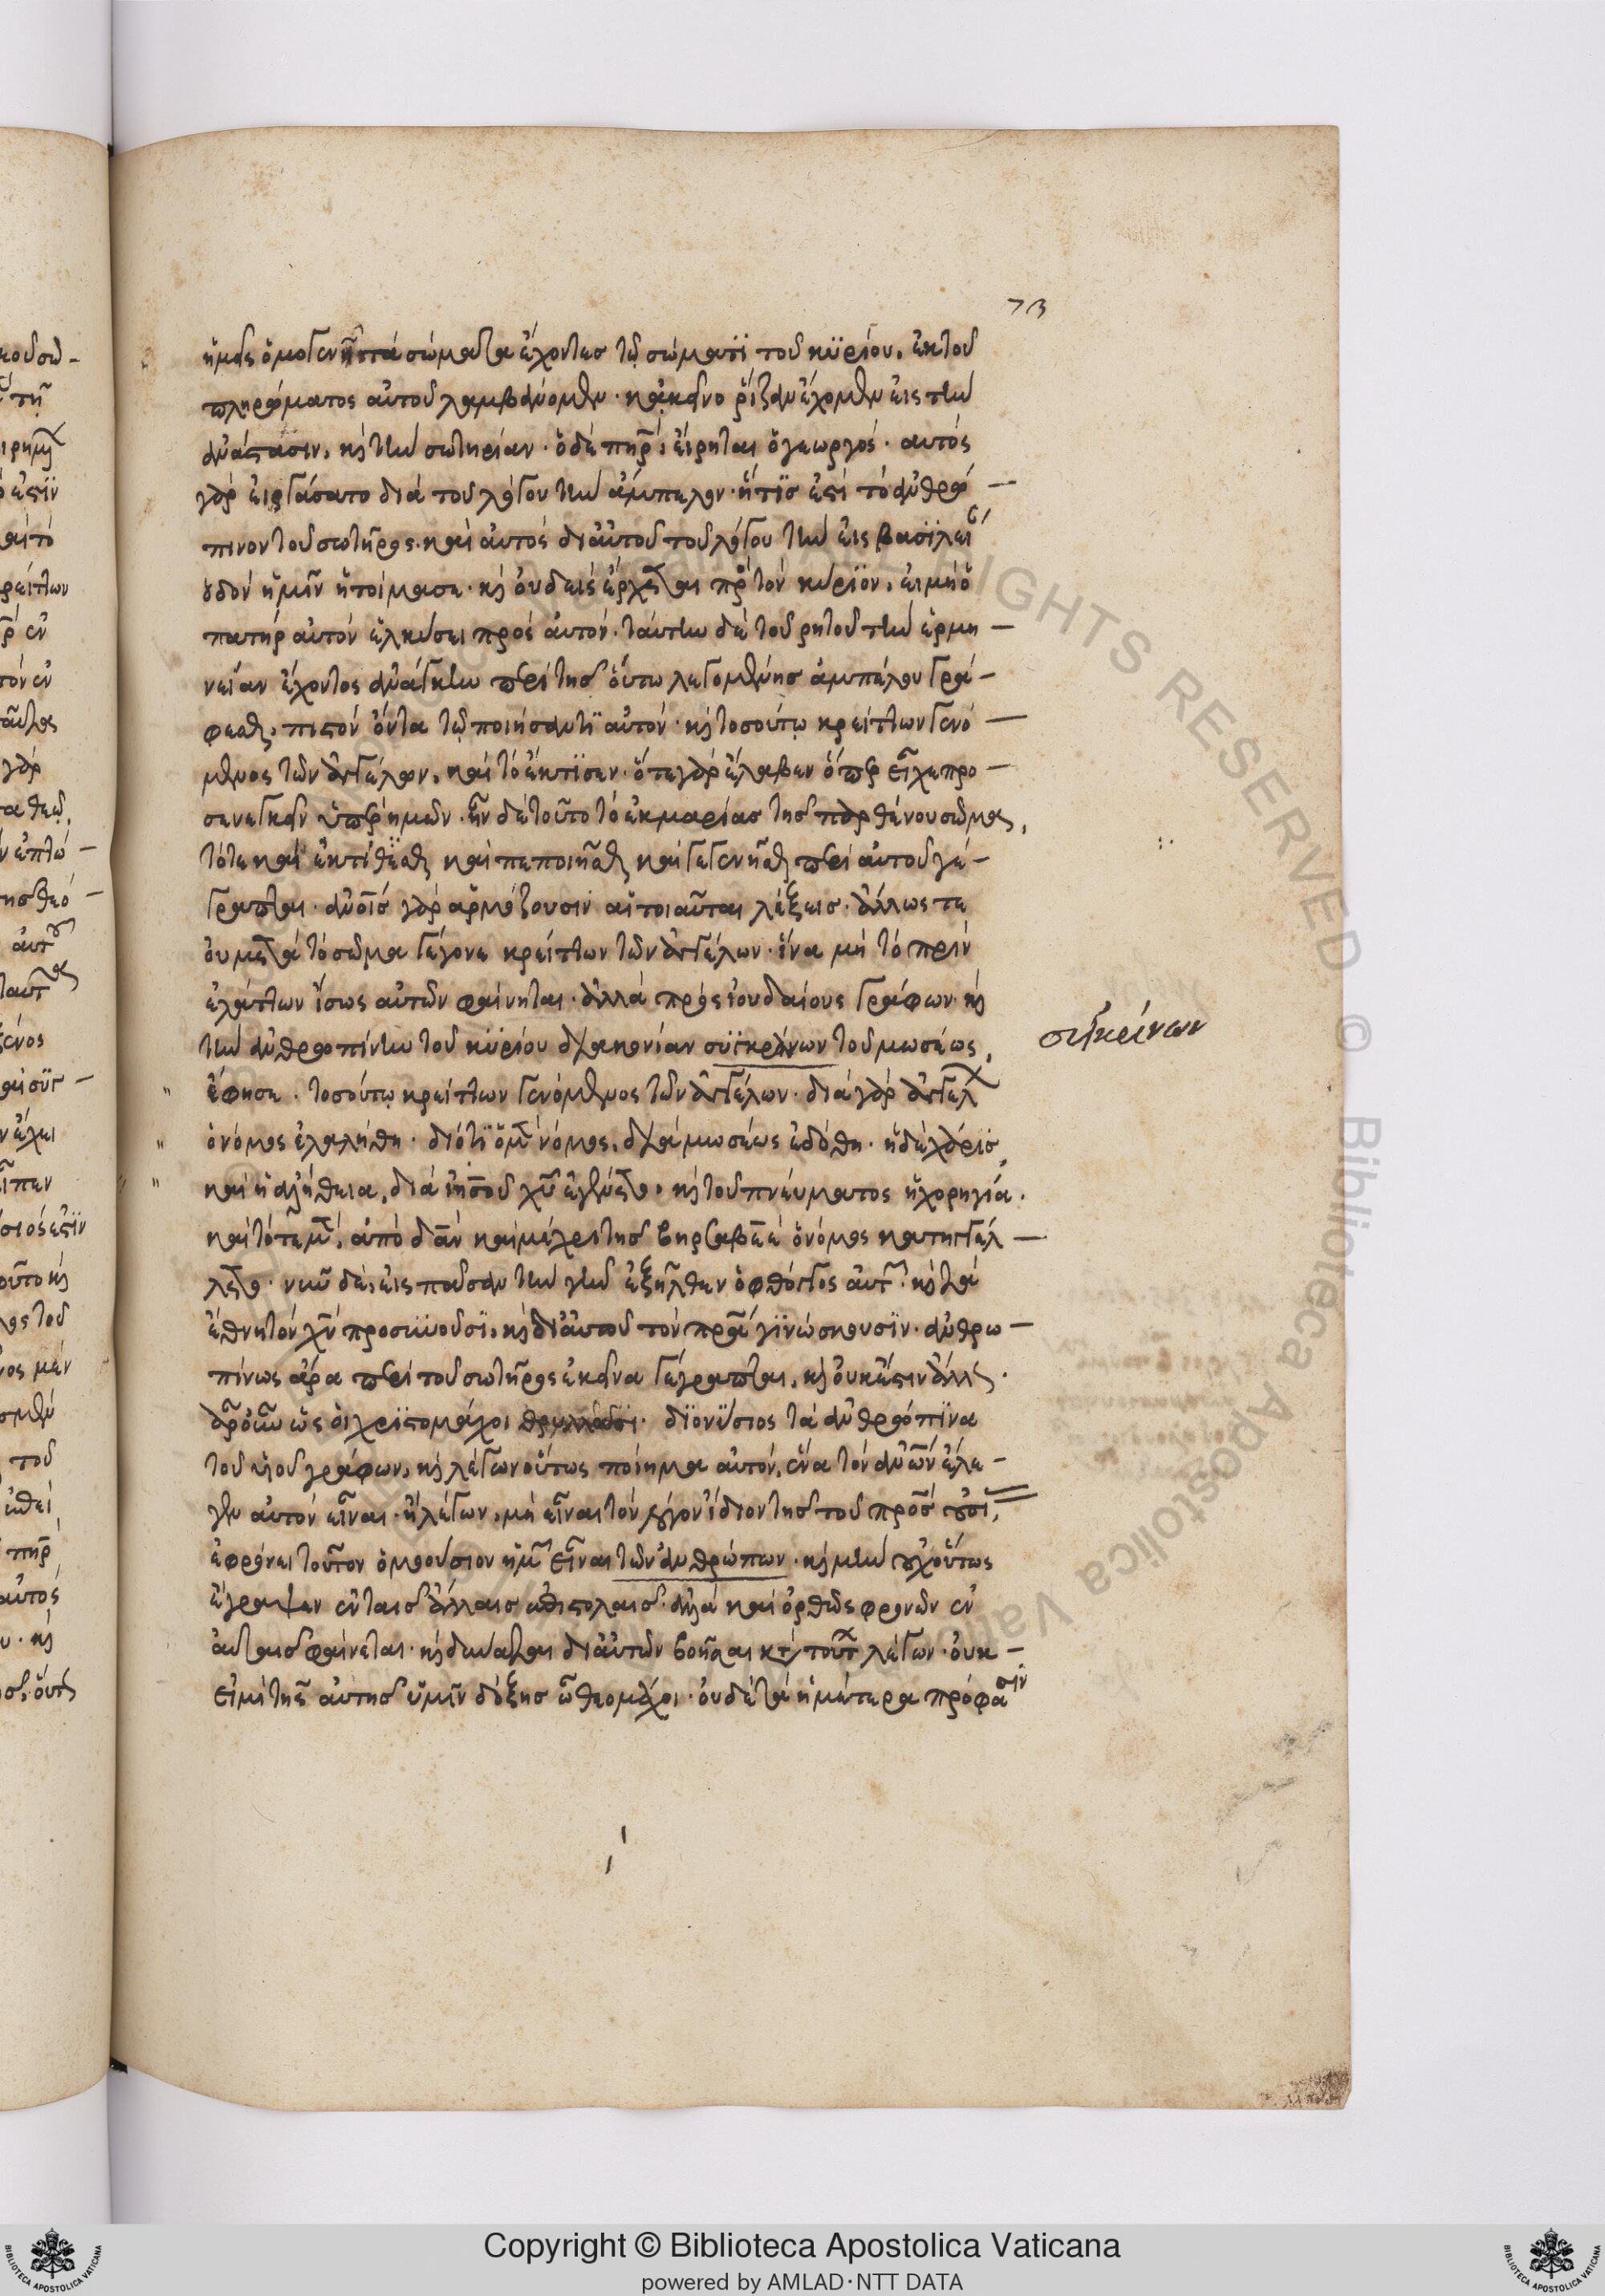 73
ἡμεῖς ὁμογενῆ τὰ σώματα ἔχοντες τῷ σώματι τοῦ κυρίου, ἐκ τοῦ
πληρώματος αὐτοῦ λαμβάνομεν· κἀκεῖνο ῥίζαν ἔχομεν εἰς τὴν
ἀνάστασιν, καὶ τὴν σωτηρίαν· ὁ δὲ πηρ, εἴρηται ὁ γεωργός· αὐτὸς
γὰρ εἰργάσατο διὰ τοῦ λόγου τὴν ἄμπελον· ἥτις ἐστὶ τὸ ἀνθρώ-
πινον τοῦ σωτῆρος· καὶ αὐτὸς δι' αὐτοῦ τοῦ λόγου τὴν εἰς βασιλεί
ὁδὸν ἡμῖν ἡτοίμασε· καὶ οὐδεὶς ἔρχεται πρὸς τὸν κύριον, εἰ μὴ ὁ
πατὴρ αὐτὸν ἑλκύσει πρὸς αὐτόν· ταύτην δὲ τοῦ ῥητοῦ τὴν ἑρμη-
νείαν ἔχοντος ἀνάγκην περὶ τῆς οὕτω λεγομένης ἀμπέλου γρά-
φεσθαι, πιστὸν ὄντα τῷ ποιήσαντι αὐτόν· καὶ τοσούτῳ κρείττων γενό-
μενος τῶν ἀγγέλων, καὶ τὸ ἔκτισεν· ὅτε γὰρ ἔλαβεν ὅπερ εἶχε προ-
σενεγκεῖν ὑπὲρ ἡμῶν· ἦν δὲ τοῦτο τὸ ἐκ μαρίας τῆς παρθένου σῶμα,
τότε καὶ ἐκτίσθαι καὶ πεποιῆσθαι καὶ γεγενῆσθαι περὶ αὐτοῦ γέ-
γραπται· ἀνοῖς γὰρ ἁρμόζουσιν αἱ τοιαῦται λέξεις· ἄλλως τε
οὐ μετὰ τὸ σῶμα γέγονε κρείττων τῶν ἀγγέλων· ἵνα μὴ τὸ πρὶν
ἐλάττων ἴσως αὐτῶν φαίνηται· ἀλλὰ πρὸς ἰουδαίους γράφων· καὶ
τὴν ἀνθρωπίνην τοῦ κυρίου διακονίαν συγκρίνων τοῦ μωσέως,
σιγκρίνων
ἔφησε· τοσούτῳ κρείττων γενόμενος τῶν ἀγγέλων· διὰ γὰρ ἀγγέλ
ὁ νόμος ἐλαλήθη· διότι ὁ μὲν νόμος, διὰ μωσέως ἐδόθη· ἡ δὲ χάρις,
καὶ ἡ ἀλήθεια, διὰ ἰησοῦ χυ ἐγένετο· καὶ τοῦ πνεύματος ἡ χορηγία.
καὶ τότε μὲν, ἀπὸ δὰν καὶ μέχρι τῆς βηρσαβεὲ ὁ νόμος κατηγγέλ-
λετο· νῦν δὲ, εἰς πᾶσαν τὴν γῆν ἐξῆλθεν ὁ φθόγγος αὐτ· καὶ τὰ
ἔθνη τὸν χν προσκυνοῦσι, καὶ δι' αὐτοῦ τὸν πρα γινώσκουσιν· ἀνθρω-
πίνως ἄρα περὶ τοῦ σωτῆρος ἐκεῖνα γέγραπται, καὶ οὐκ ἔστιν ἄλλως·
ἆρ' οὖν ὡς οἱ χριστομάχοι θρυλλοῦσι· διονύσιος τὰ ἀνθρώπινα
τοῦ υἱοῦ γράφων, καὶ λέγων οὕτως ποίημα αὐτὸν, ἕνα τῶν ἀνων ἔλε-
γεν αὐτὸν εἶναι· ἢ λέγων, μὴ εἶναι τὸν λόγον ἴδιον τῆς τοῦ προς οὐσί,
ἐφρόνει τοῦτον ὁμοούσιον ἡμ εἶναι τῶν ἀνθρώπων· καὶ μὴν οὐχ οὕτως
ἔγραψεν ἐν ταῖς ἄλλαις ἐπιστολαῖς· ἀλλὰ καὶ ὀρθῶς φρονῶν ἐν
αὐταῖς φαίνεται· καὶ δύναται δι' αὐτῶν βοῆσαι κατὰ τούτ λέγων· οὐκ-
εἰμὶ τῆς αὐτῆς ὑμῖν δόξης ὦ θεομάχοι· οὐδὲ τὰ ἡμέτερα πρόφασιν